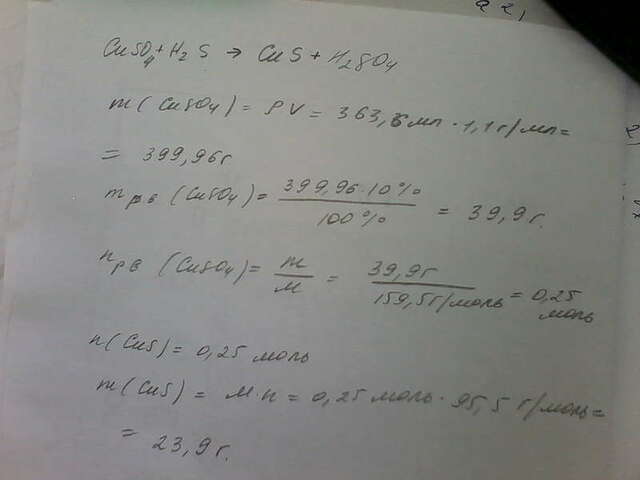 CuSO4 + H2S → CuS + H2SO4
m (CuSO4) = ρV = 363,6 мл · 1,1 г/мл =
= 399,96 г
m р.в (CuSO4) = 399,96 · 10% / 100% = 39,9 г.
n р.в (CuSO4) = m / M = 39,9 г / 159,5 г/моль = 0,25 моль
n (CuS) = 0,25 моль
m (CuS) = M · n = 0,25 моль · 95,5 г/моль =
= 23,9 г.